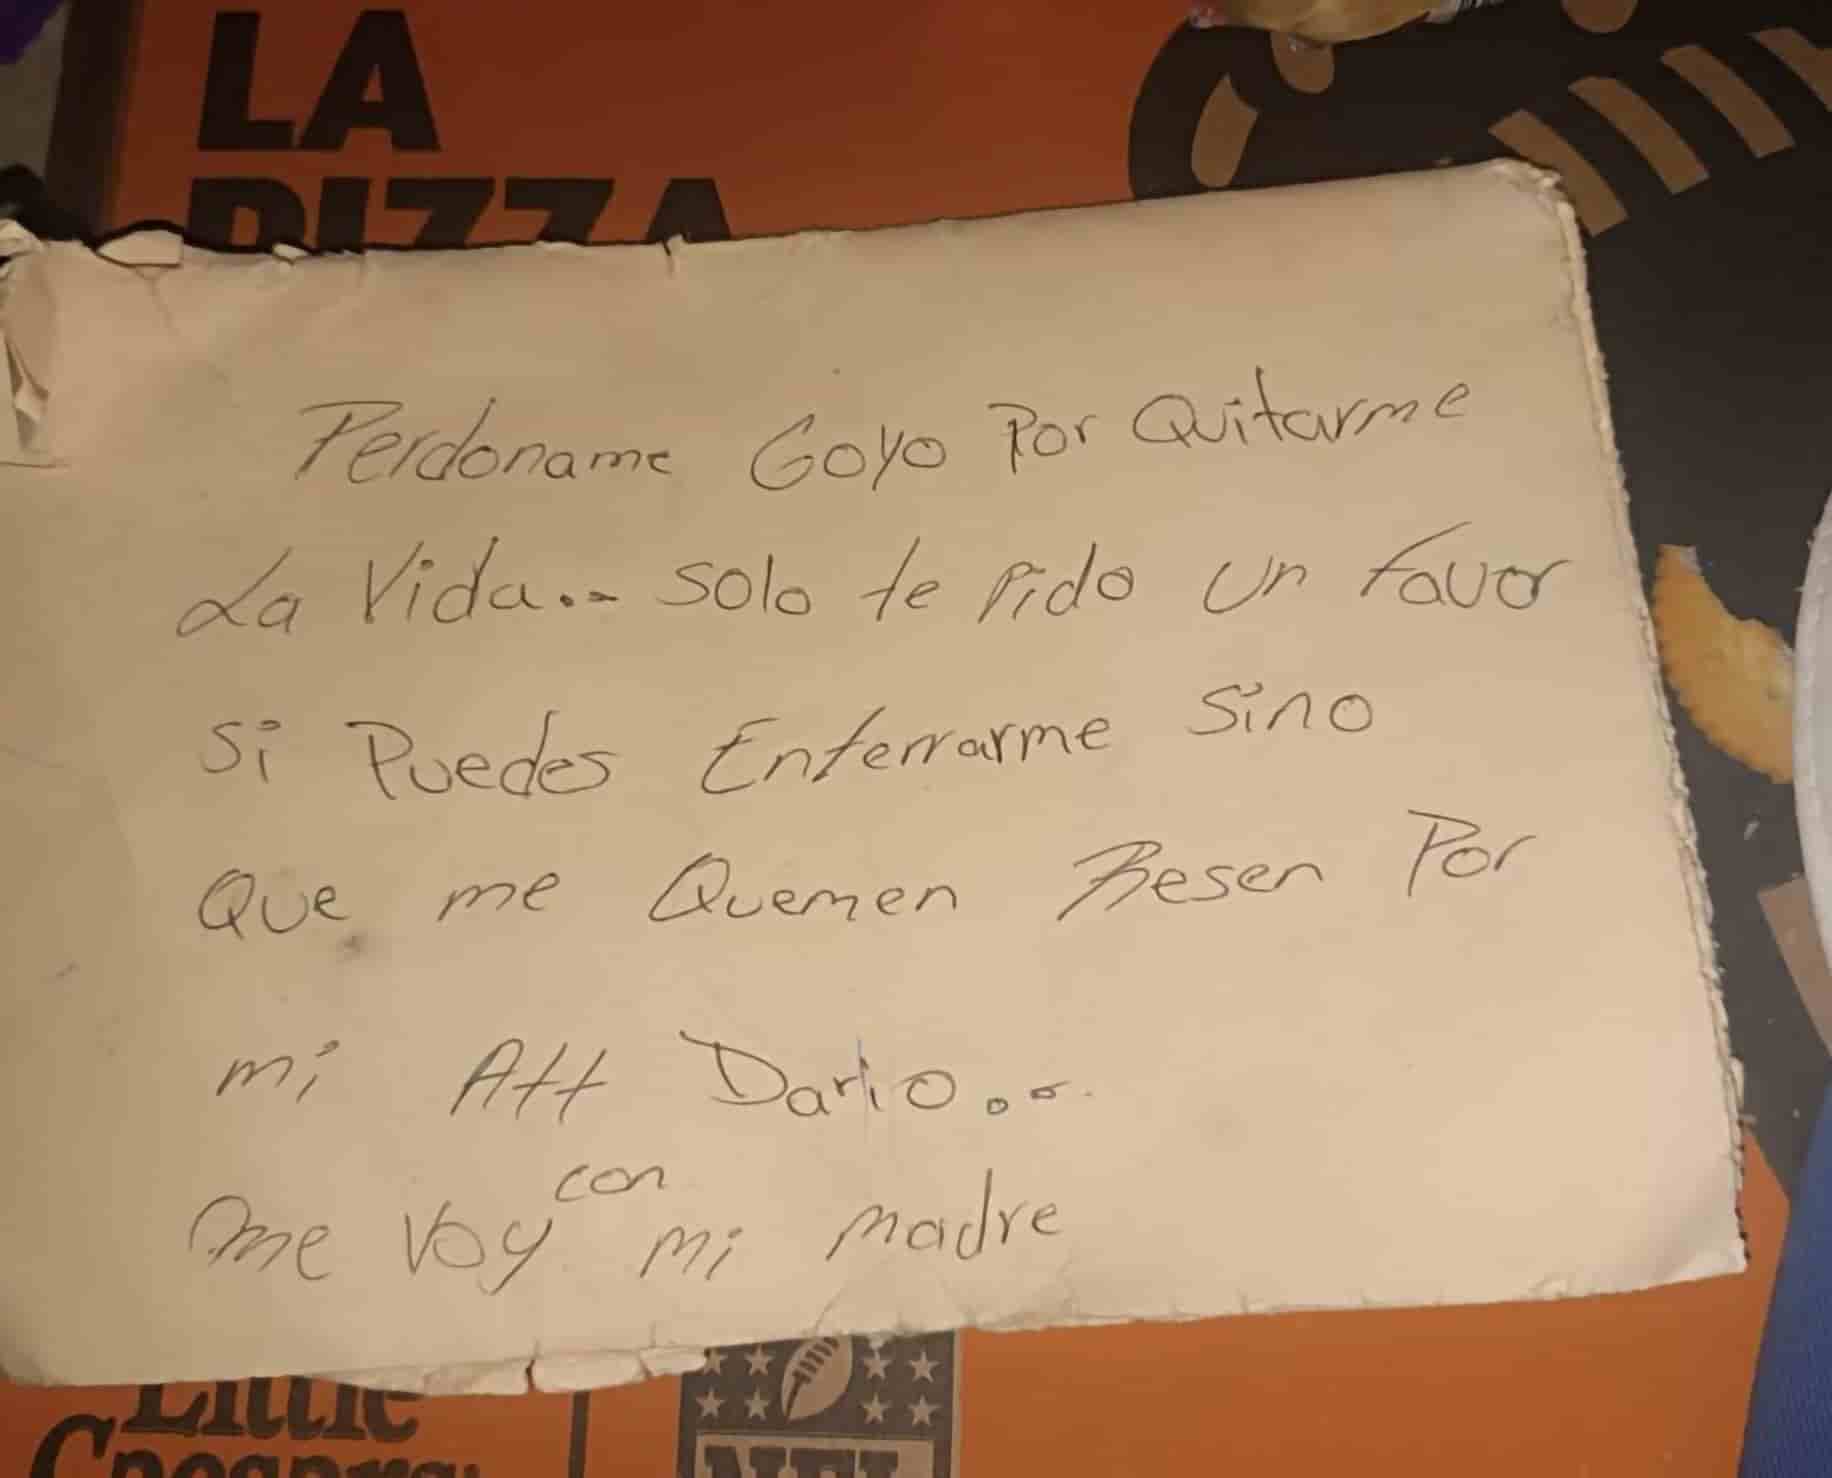 LA
PIZZA
Perdoname Goyo Por Quitarme
La Vida... solo te pido un favor
si Puedes Enterrarme sino
Que me Quemen Resen Por
mi Att Dario...
me voy con mi madre
Little
Caesars
NFL